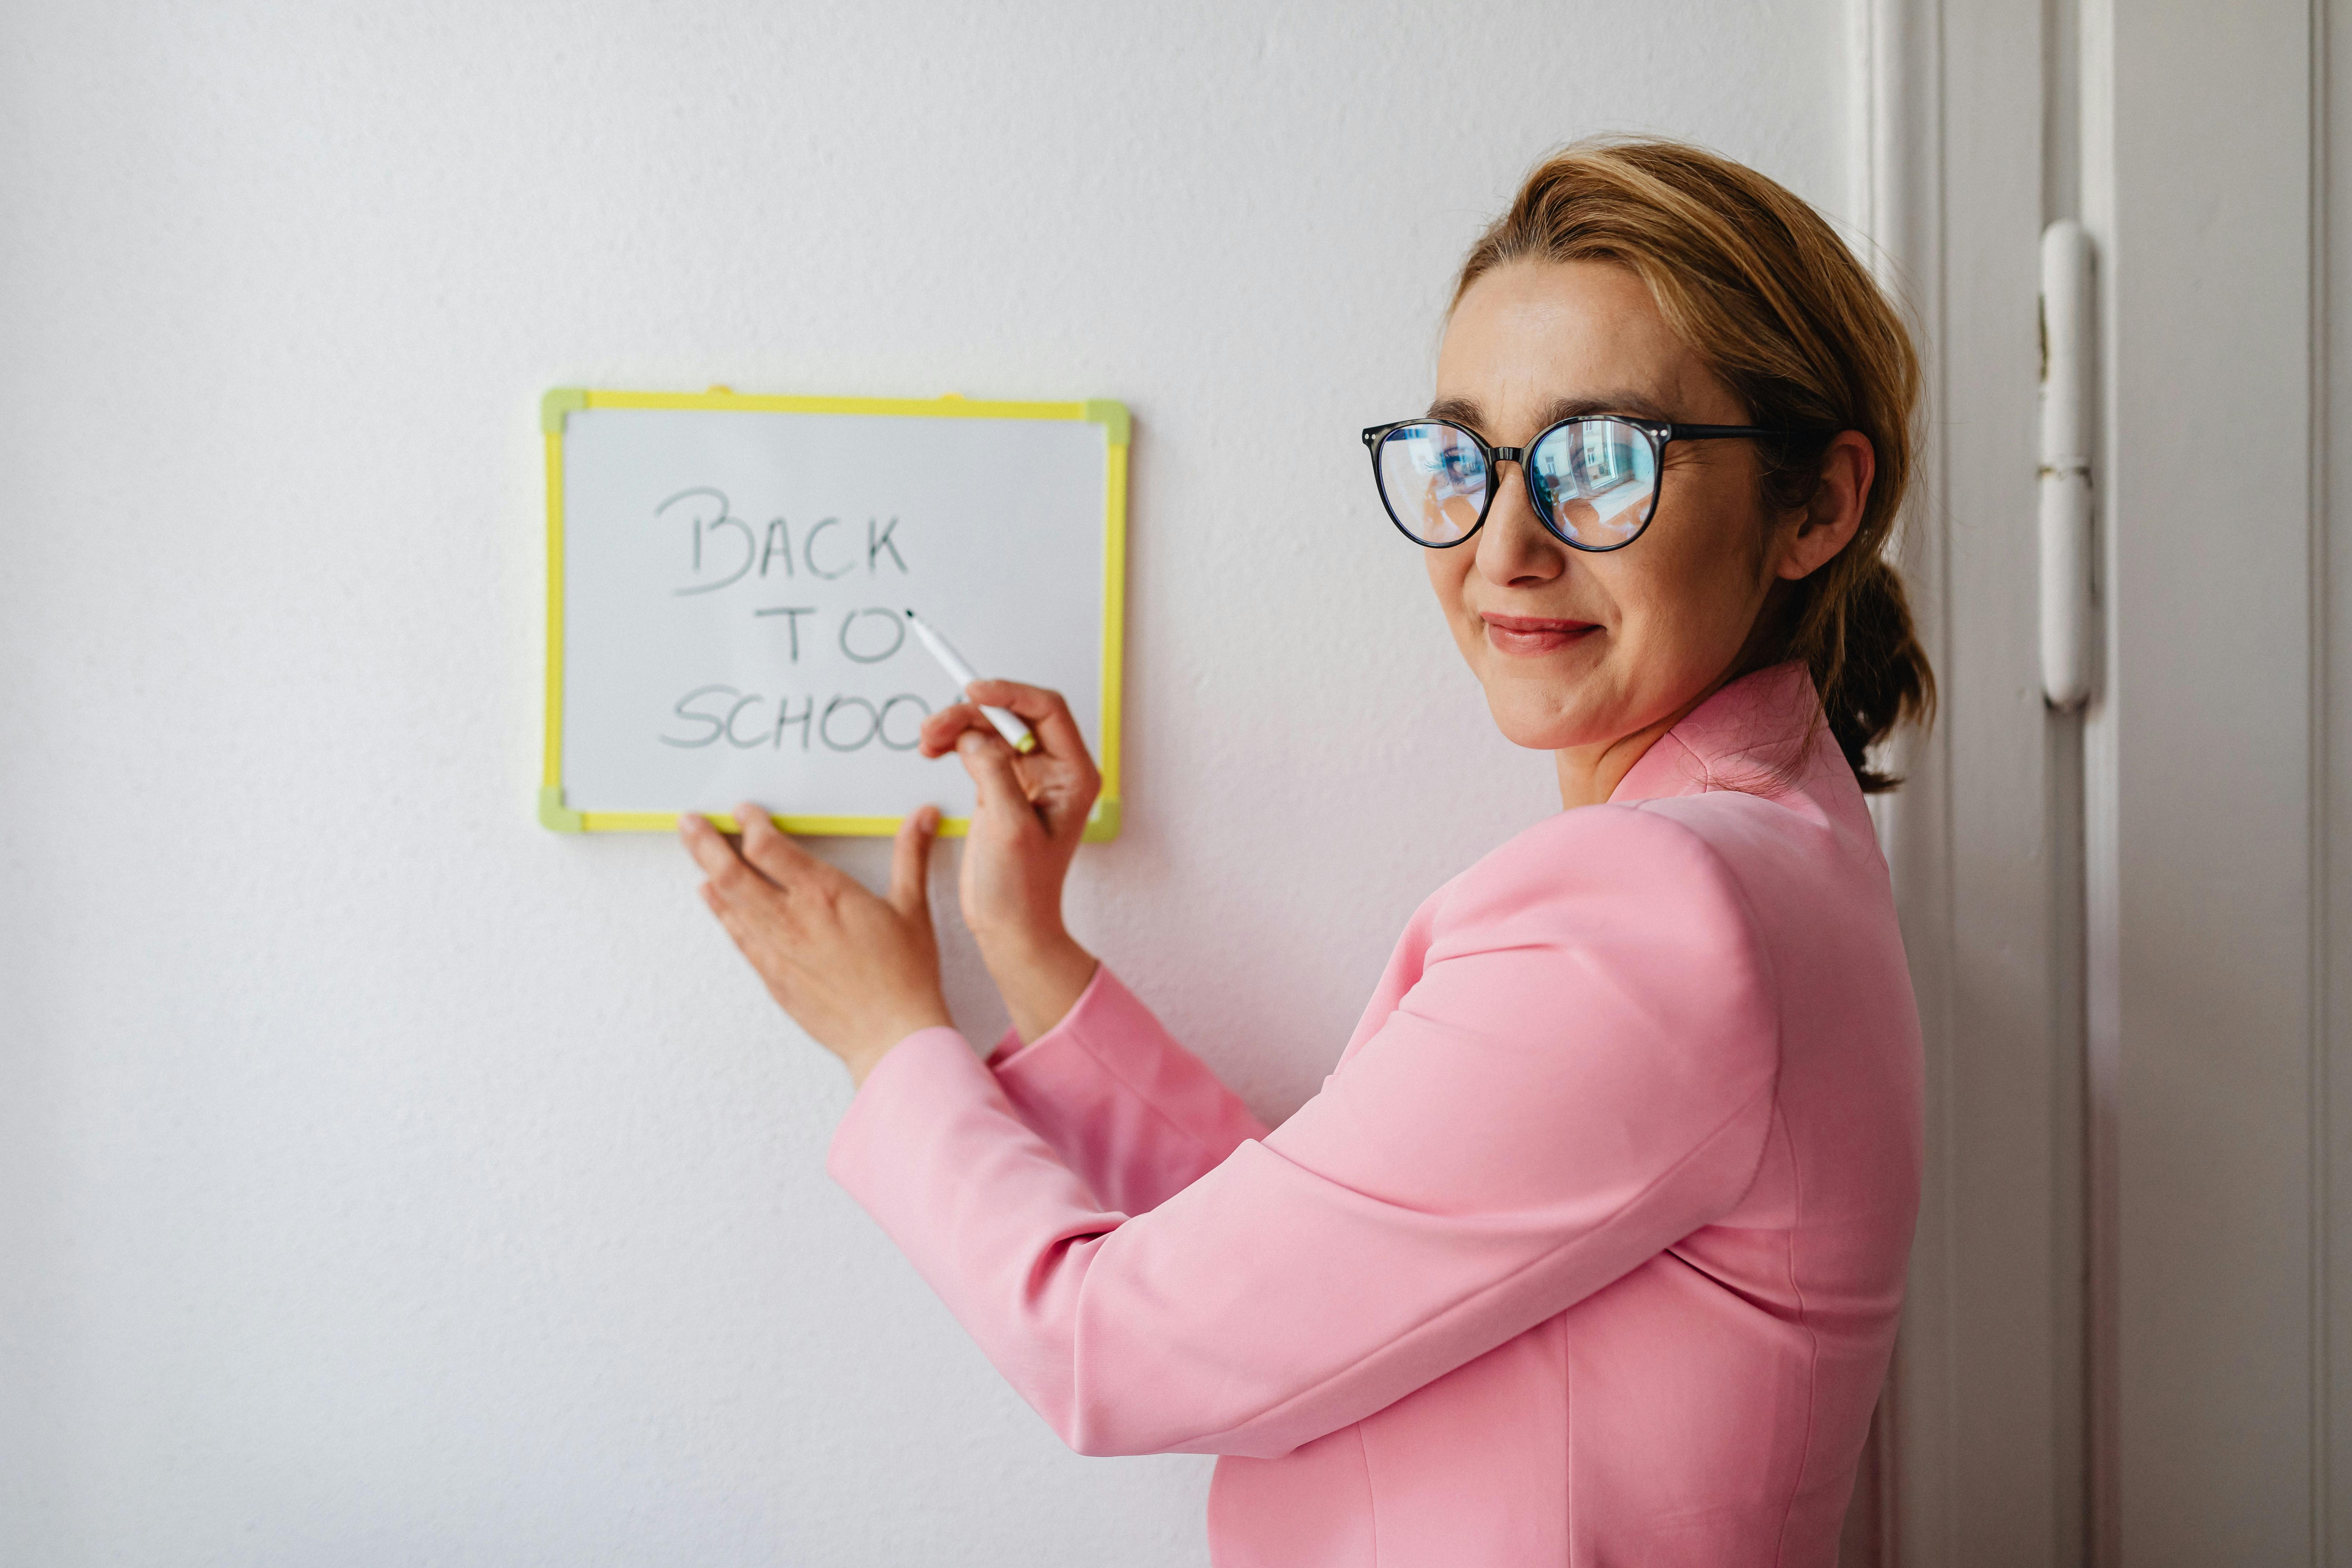 BACK
TO
SCHOO